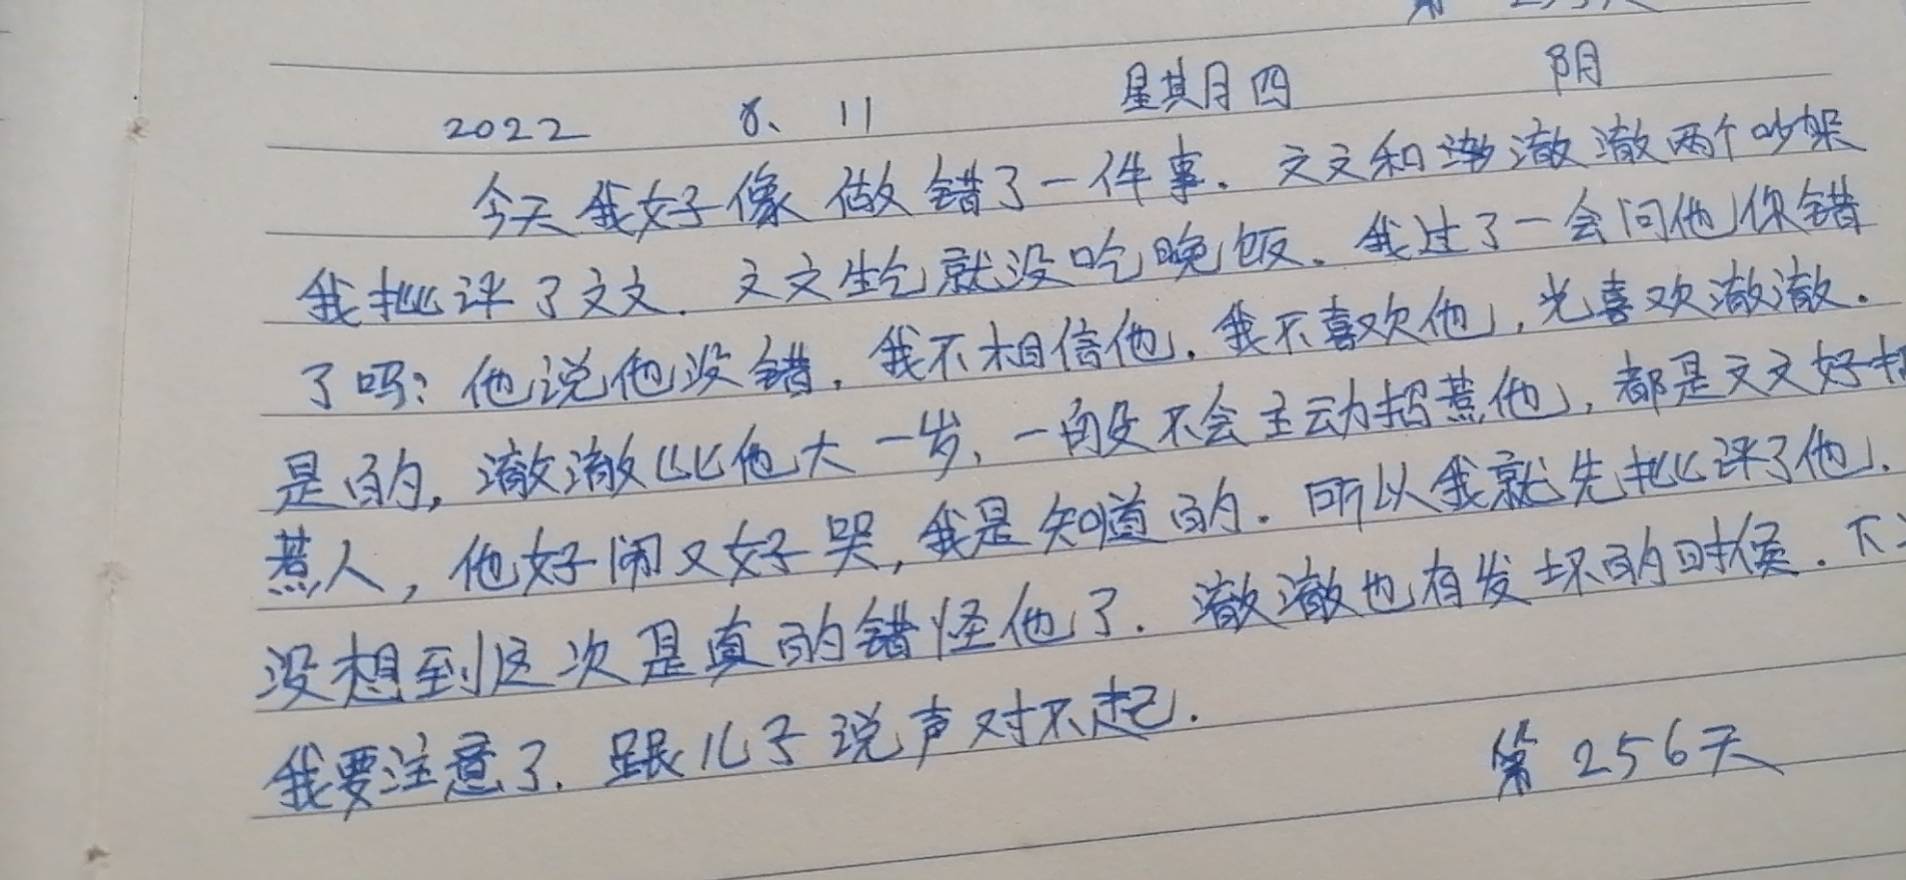 2022 8、11 星其月四 阴
今天我好像做错了一件事。文文和澈澈两个吵架
我批评了文文。文文生气就没吃晚饭。我过了一会问他你错
了吗？他说他没错，我不相信他。我不喜欢他，光喜欢澈澈。
是的，澈澈比他大一岁，一般不会主动招惹他，都是文文好招
惹人，他好闹又好哭，我是知道的。所以我就先批评了他。
没想到这次是真的错怪他了。澈澈也有发坏的时候。下
我要注意了。跟儿子说声对不起。
第256天